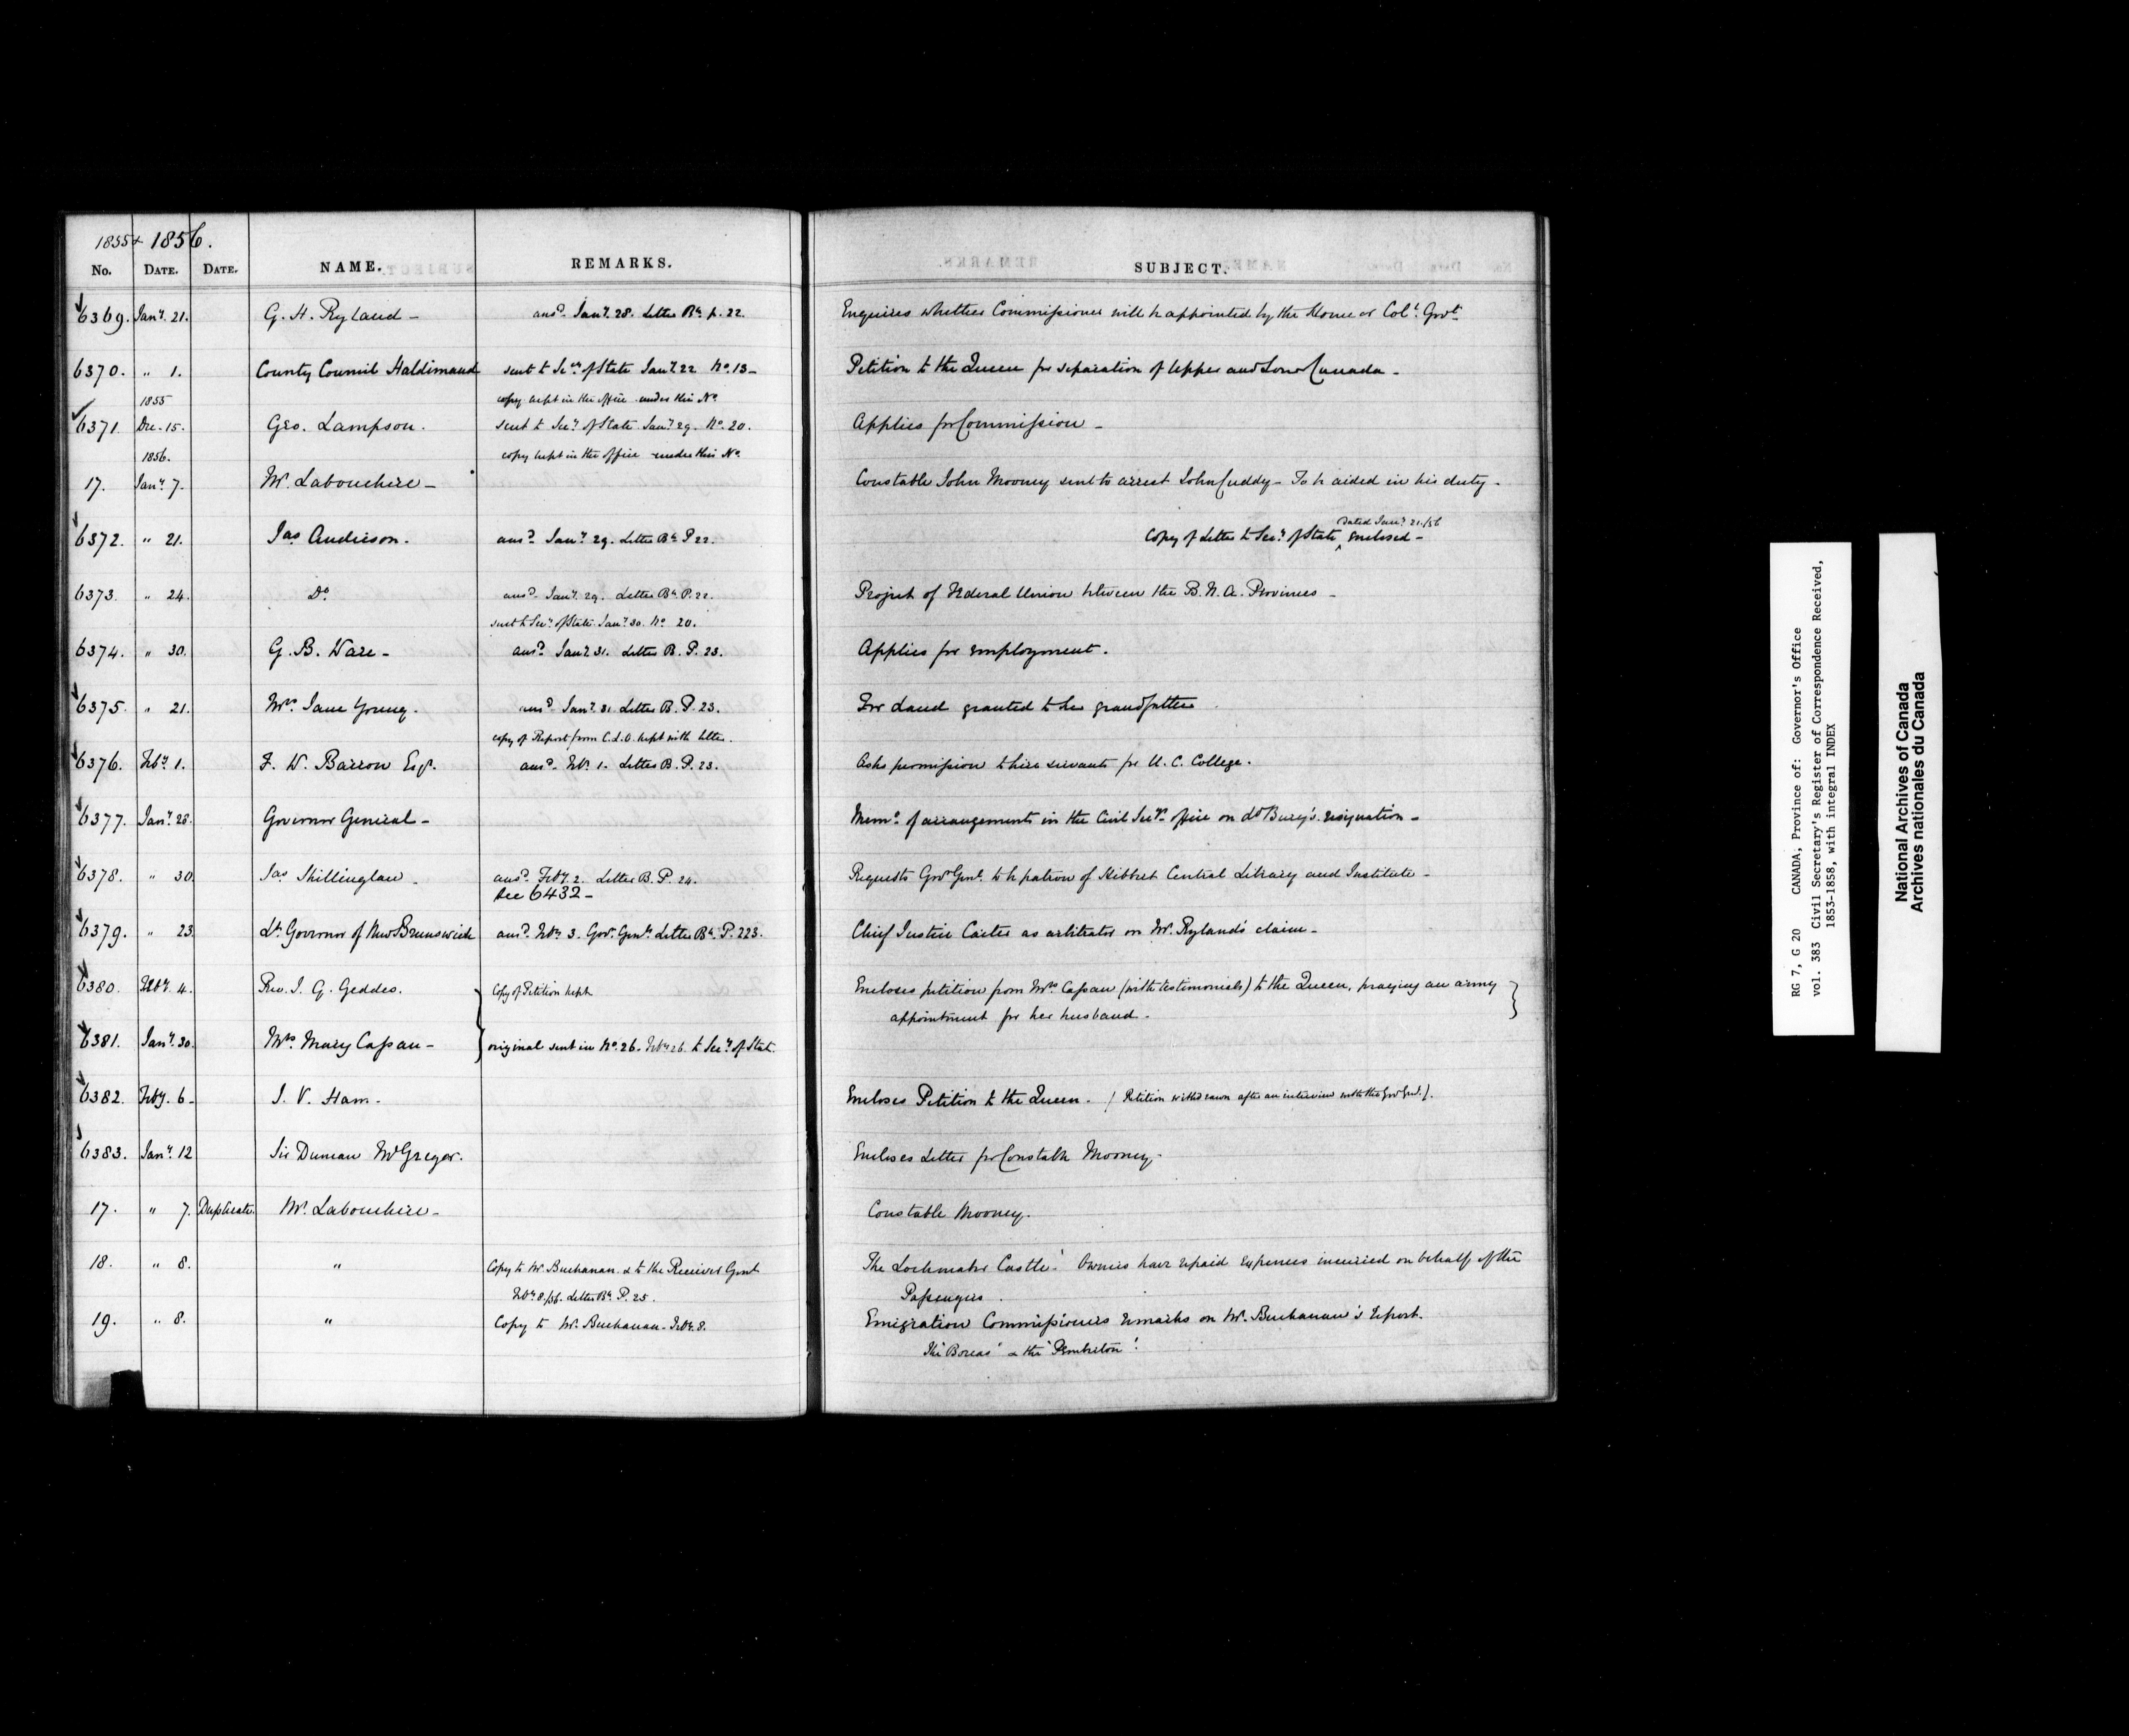 1855 & 1856.
No. DATE. DATE. NAME. REMARKS. SUBJECT.
6369. Jany. 21. G. H. Ryland - ansd. Jany. 28. Letter Bk. p. 22. Enquires whether Commissioner will be appointed by the Home or Coll. Govt.
6370. " 1. County Council Haldimand sent to Secy. of State Jany. 22 No. 13 - Petition to the Queen for separation of Upper and Lower Canada -
1855 copy kept in the office under this No.
6371. Dec. 15. Geo. Lampson. sent to Secy. of State Jany. 29. No. 20. Applies for Commission -
1856. copy kept in the office under this No.
17. Jany. 7. Mr. Labouchere - Constable John Mooney sent to arrest John Cuddy - To be aided in his duty -
dated Jany. 21./56
6372. " 21. Jas. Anderson. ansd. Jany. 29. Letter Bk. P 22. Copy of Letter to Secy. of State enclosed -
6373. " 24. Do. ansd. Jany. 29. Letter Bk. P. 22. Project of Federal Union between the B. N. A. Provinces -
sent to Secy. of State Jany. 30. No. 20.
6374. " 30. G. B. Ware - ansd. Jany. 31. Letter B. P. 23. Applies for employment.
6375. " 21. Mrs. Jane Young. ansd. Jany. 31 Letter B. P. 23. For Land granted to her grandfather
copy of Report from C. L. O. kept with letter.
6376. Feby. 1. F. W. Barron Esqr. ansd. Feby. 1. Letter B. P. 23. Asks permission to hire servants for U. C. College.
6377. Jany. 28. Governor General - Memo. of arrangements in the Civil Secy's. office on Ld. Bury's resignation -
6378. " 30. Jas. Skillinglaw - ansd. Feby. 2. Letter B. P. 24. Requests Govr. Genl. to be patron of Hibbert Central Library and Institute -
See 6432 -
6379. " 23. Lt. Governor of New Brunswick ansd. Feby. 3. Govr. Genl's. Letter Bk. P. 223. Chief Justice Carter as arbitrator on Mr. Ryland's claim -
6380. Feby. 4. Rev. J. G. Geddes. Copy of Petition kept Encloses petition from Mrs. Cassan (with testimonials) to the Queen, praying an army
appointment for her husband -
6381. Jany. 30. Mrs. Mary Cassan - original sent in No. 26. Feby. 26. to Secy. of State.
6382. Feby. 6 - J. V. Ham - Encloses Petition to the Queen - (Petition withdrawn after an interview with the Govr. Genl.).
6383. Jany. 12 Sir Duncan McGregor. Encloses Letter for Constable Mooney.
17. " 7. Duplicate. Mr. Labouchere - Constable Mooney.
18. " 8. " Copy to Mr. Buchanan & to the Receiver Genl. The Lochmabar Castle! Owners have repaid expenses incurred on behalf of the
Feby. 8./56. Letter Bk. P. 25. Passengers.
19. " 8. " Copy to Mr. Buchanan - Feby. 8. Emigration Commissioners remarks on Mr. Buchanan's report.
The 'Boreas' & the 'Pemberton'!
RG 7, G 20 CANADA, Province of: Governor's Office
vol. 383 Civil Secretary's Register of Correspondence Received,
1853-1858, with integral INDEX
National Archives of Canada
Archives nationales du Canada